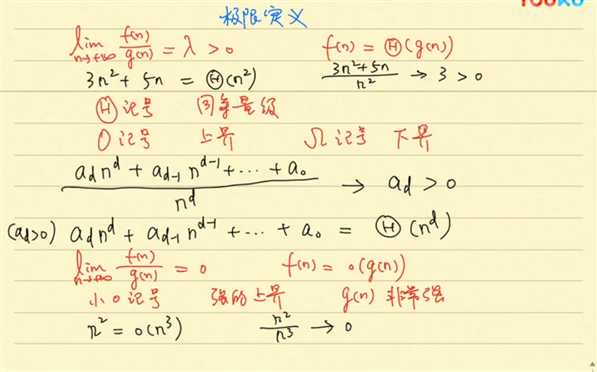 YOUKU
极限定义
lim n→+∞ f(n)/g(n) = λ > 0    f(n) = Θ(g(n))
3n² + 5n = Θ(n²)    (3n²+5n)/n² → 3 > 0
Θ记号    同等量级
O记号    上界    Ω记号    下界
(a_d n^d + a_{d-1} n^{d-1} + ⋯ + a₀)/n^d → a_d > 0
(a_d>0) a_d n^d + a_{d-1} n^{d-1} + ⋯ + a₀ = Θ(n^d)
lim n→+∞ f(n)/g(n) = 0    f(n) = o(g(n))
小o记号    强的上界    g(n) 非常强
n² = o(n³)    n²/n³ → 0